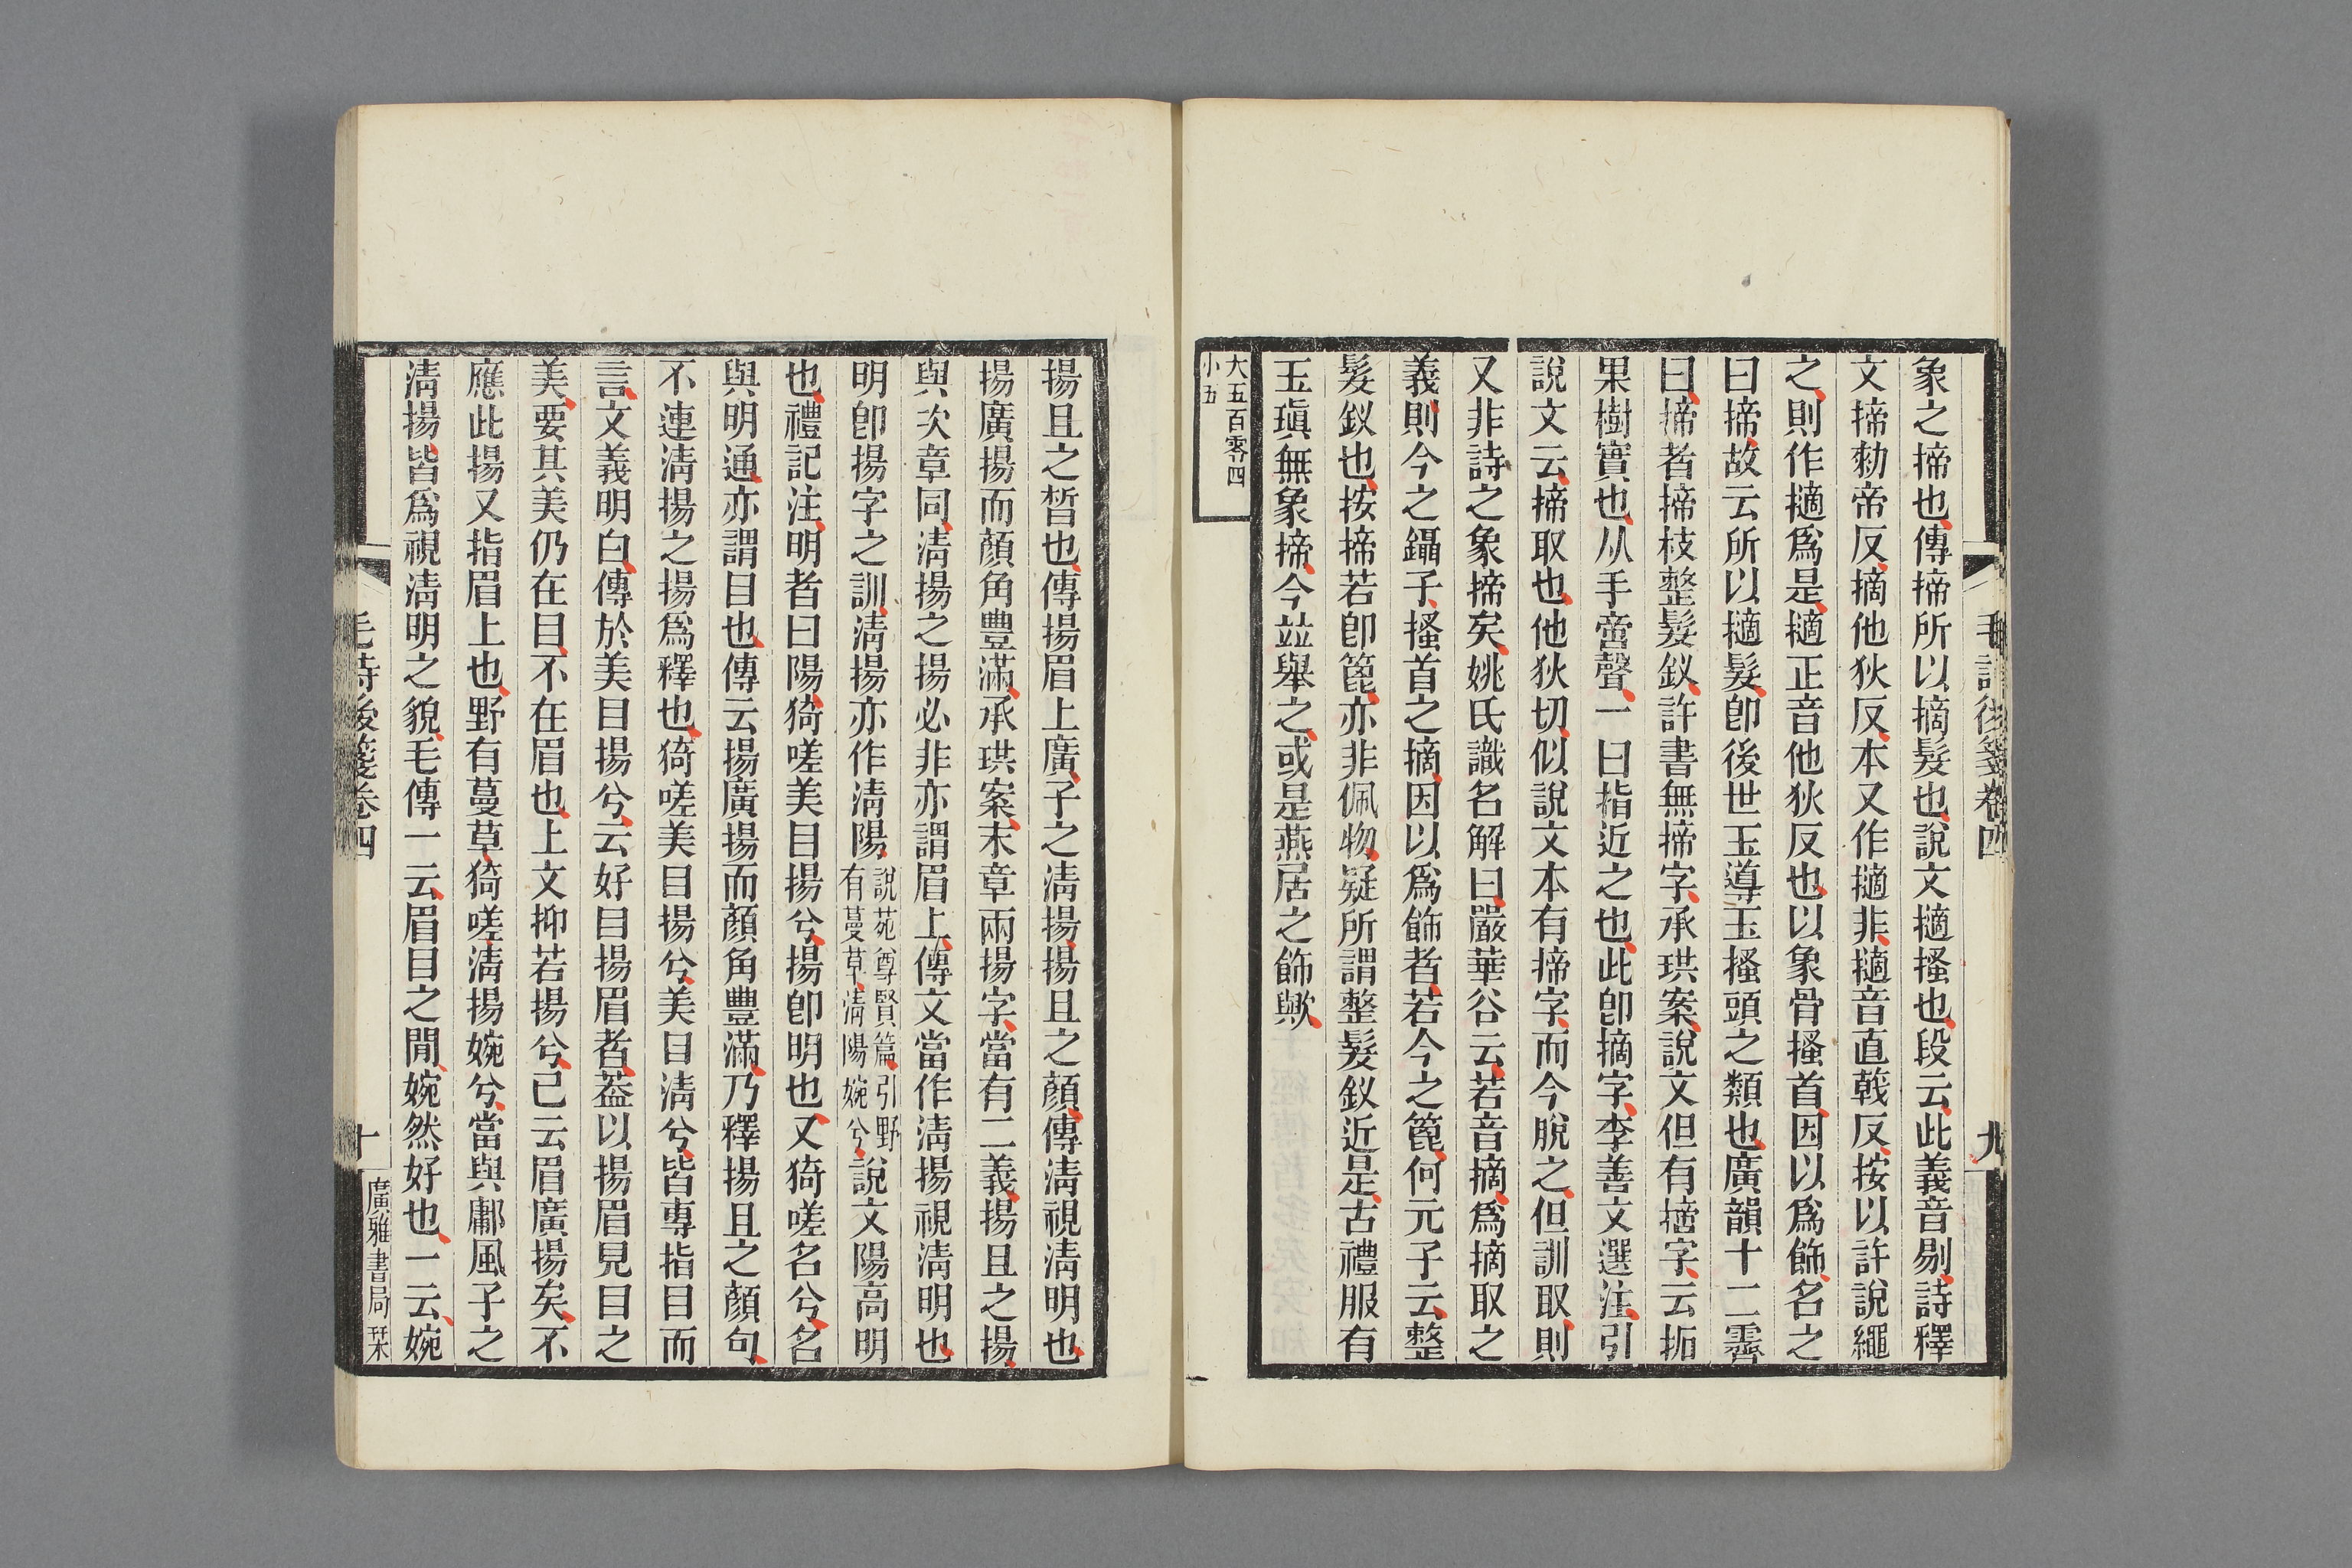 毛詩後箋卷四
九
象之揥也傳揥所以摘髮也說文擿搔也段云此義音剔詩釋
文揥勅帝反摘他狄反本又作擿非擿音直戟反按以許說繩
之則作擿爲是擿正音他狄反也以象骨搔首因以爲飾名之
曰揥故云所以擿髮卽後世玉導玉搔頭之類也廣韻十二霽
曰揥者揥枝整髮釵許書無揥字承珙案說文但有摕字云拓
果樹實也从手啻聲一曰指近之也此卽摘字李善文選注引
說文云揥取也他狄切似說文本有揥字而今脫之但訓取則
又非詩之象揥矣姚氏識名解曰嚴華谷云若音摘爲摘取之
義則今之鑷子搔首之摘因以爲飾者若今之篦何元子云整
髮釵也按揥若卽篦亦非佩物疑所謂整髮釵近是古禮服有
玉瑱無象揥今竝舉之或是燕居之飾歟
大五百零四
小五
揚且之晳也傳揚眉上廣子之淸揚揚且之顏傳淸視淸明也
揚廣揚而顏角豐滿承珙案末章兩揚字當有二義揚且之揚
與次章同淸揚之揚必非亦謂眉上傳文當作淸揚視淸明也
明卽揚字之訓淸揚亦作淸陽說苑尊賢篇引野有蔓草淸陽婉兮說文陽高明
也禮記注明者曰陽猗嗟美目揚兮揚卽明也又猗嗟名兮名
與明通亦謂目也傳云揚廣揚而顏角豐滿乃釋揚且之顏句
不連淸揚之揚爲釋也猗嗟美目揚兮美目淸兮皆專指目而
言文義明白傳於美目揚兮云好目揚眉者葢以揚眉見目之
美要其美仍在目不在眉也上文抑若揚兮已云眉廣揚矣不
應此揚又指眉上也野有蔓草猗嗟淸揚婉兮當與鄘風子之
淸揚皆爲視淸明之貌毛傳一云眉目之閒婉然好也一云婉
毛詩後箋卷四
十
廣雅書局栞